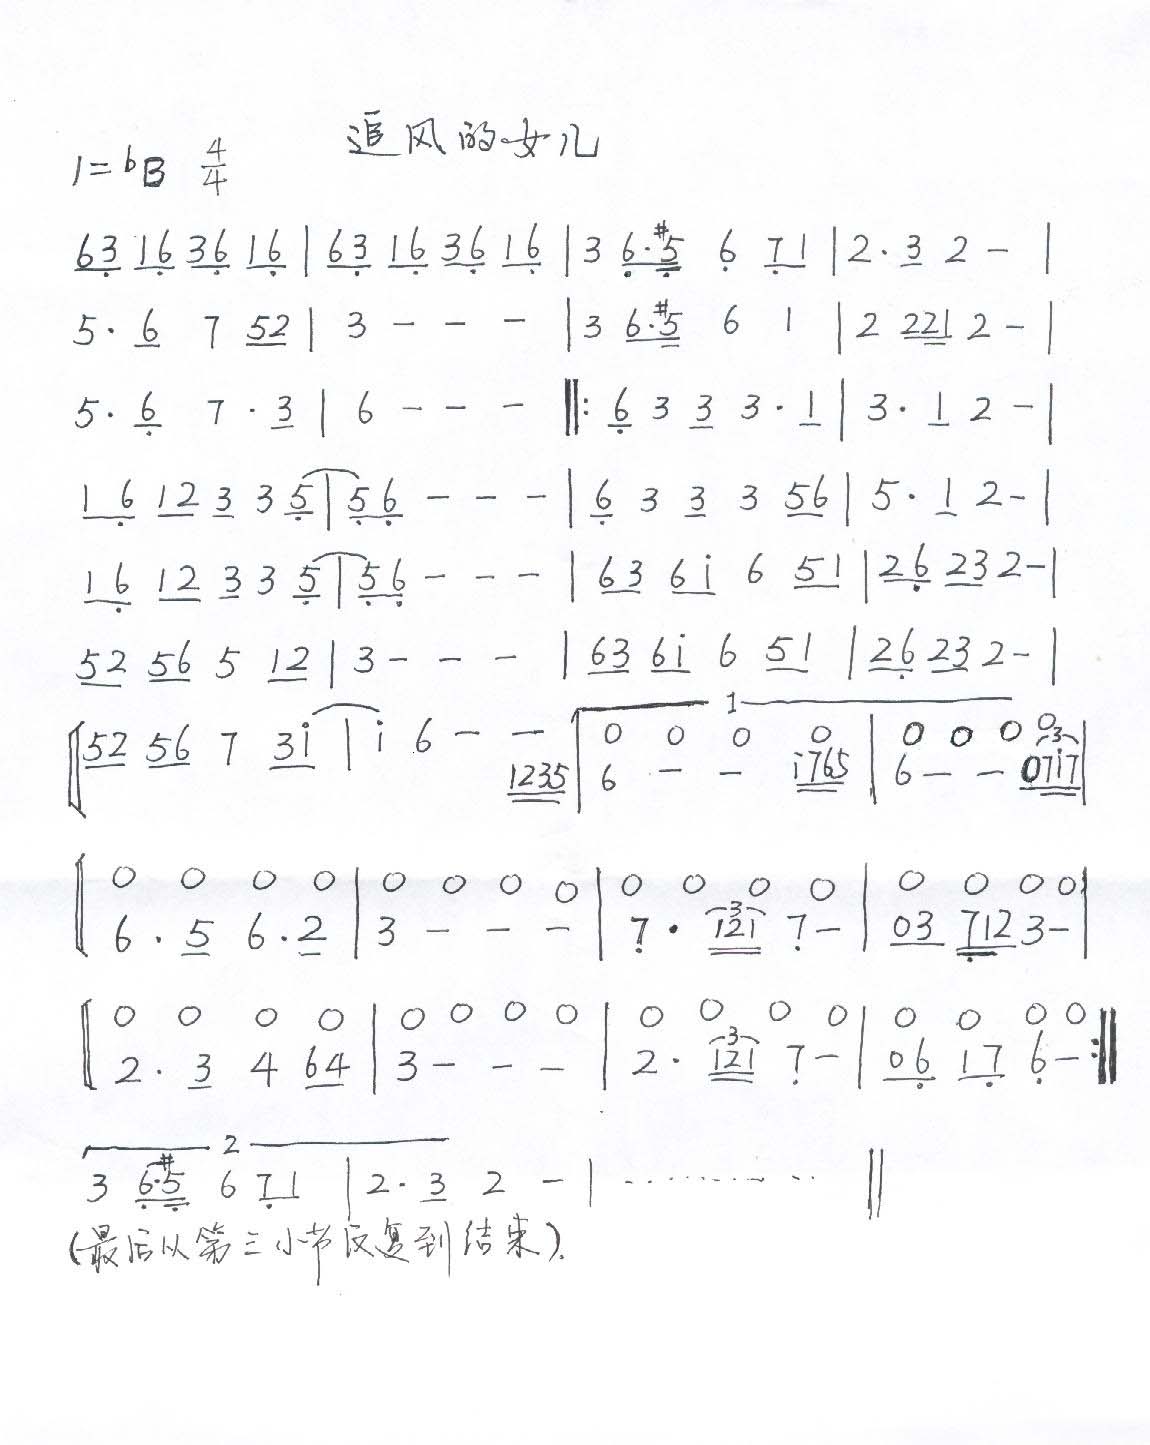 追风的女儿
1=bB 4/4
63 16 36 16 | 63 16 36 16 | 3 6·#5 6 71 | 2·3 2 - |
5·6 7 52 | 3 - - - | 3 6·#5 6 1 | 2 221 2 - |
5·6 7·3 | 6 - - - ‖: 6 3 3 3·1 | 3·1 2 - |
16 12 3 3 5 | 56 - - - | 6 3 3 3 56 | 5·1 2 - |
16 12 3 3 5 | 56 - - - | 63 6i 6 51 | 26 23 2 - |
52 56 5 12 | 3 - - - | 63 6i 6 51 | 26 23 2 - |
1
52 56 7 3i | i 6 - - | 0 0 0 0 | 0 0 0 0 |
1235 | 6 - - i765 | 6 - - 07i7 |
3
0 0 0 0 | 0 0 0 0 | 0 0 0 0 | 0 0 0 0 |
3
6·5 6·2 | 3 - - - | 7·121 7 - | 03 712 3 - |
0 0 0 0 | 0 0 0 0 | 0 0 0 0 | 0 0 0 0
3
2·3 4 64 | 3 - - - | 2·121 7 - | 06 17 6 - :‖
2
3 6·#5 6 71 | 2·3 2 - | ·········· ‖
(最后从第三小节反复到结束).